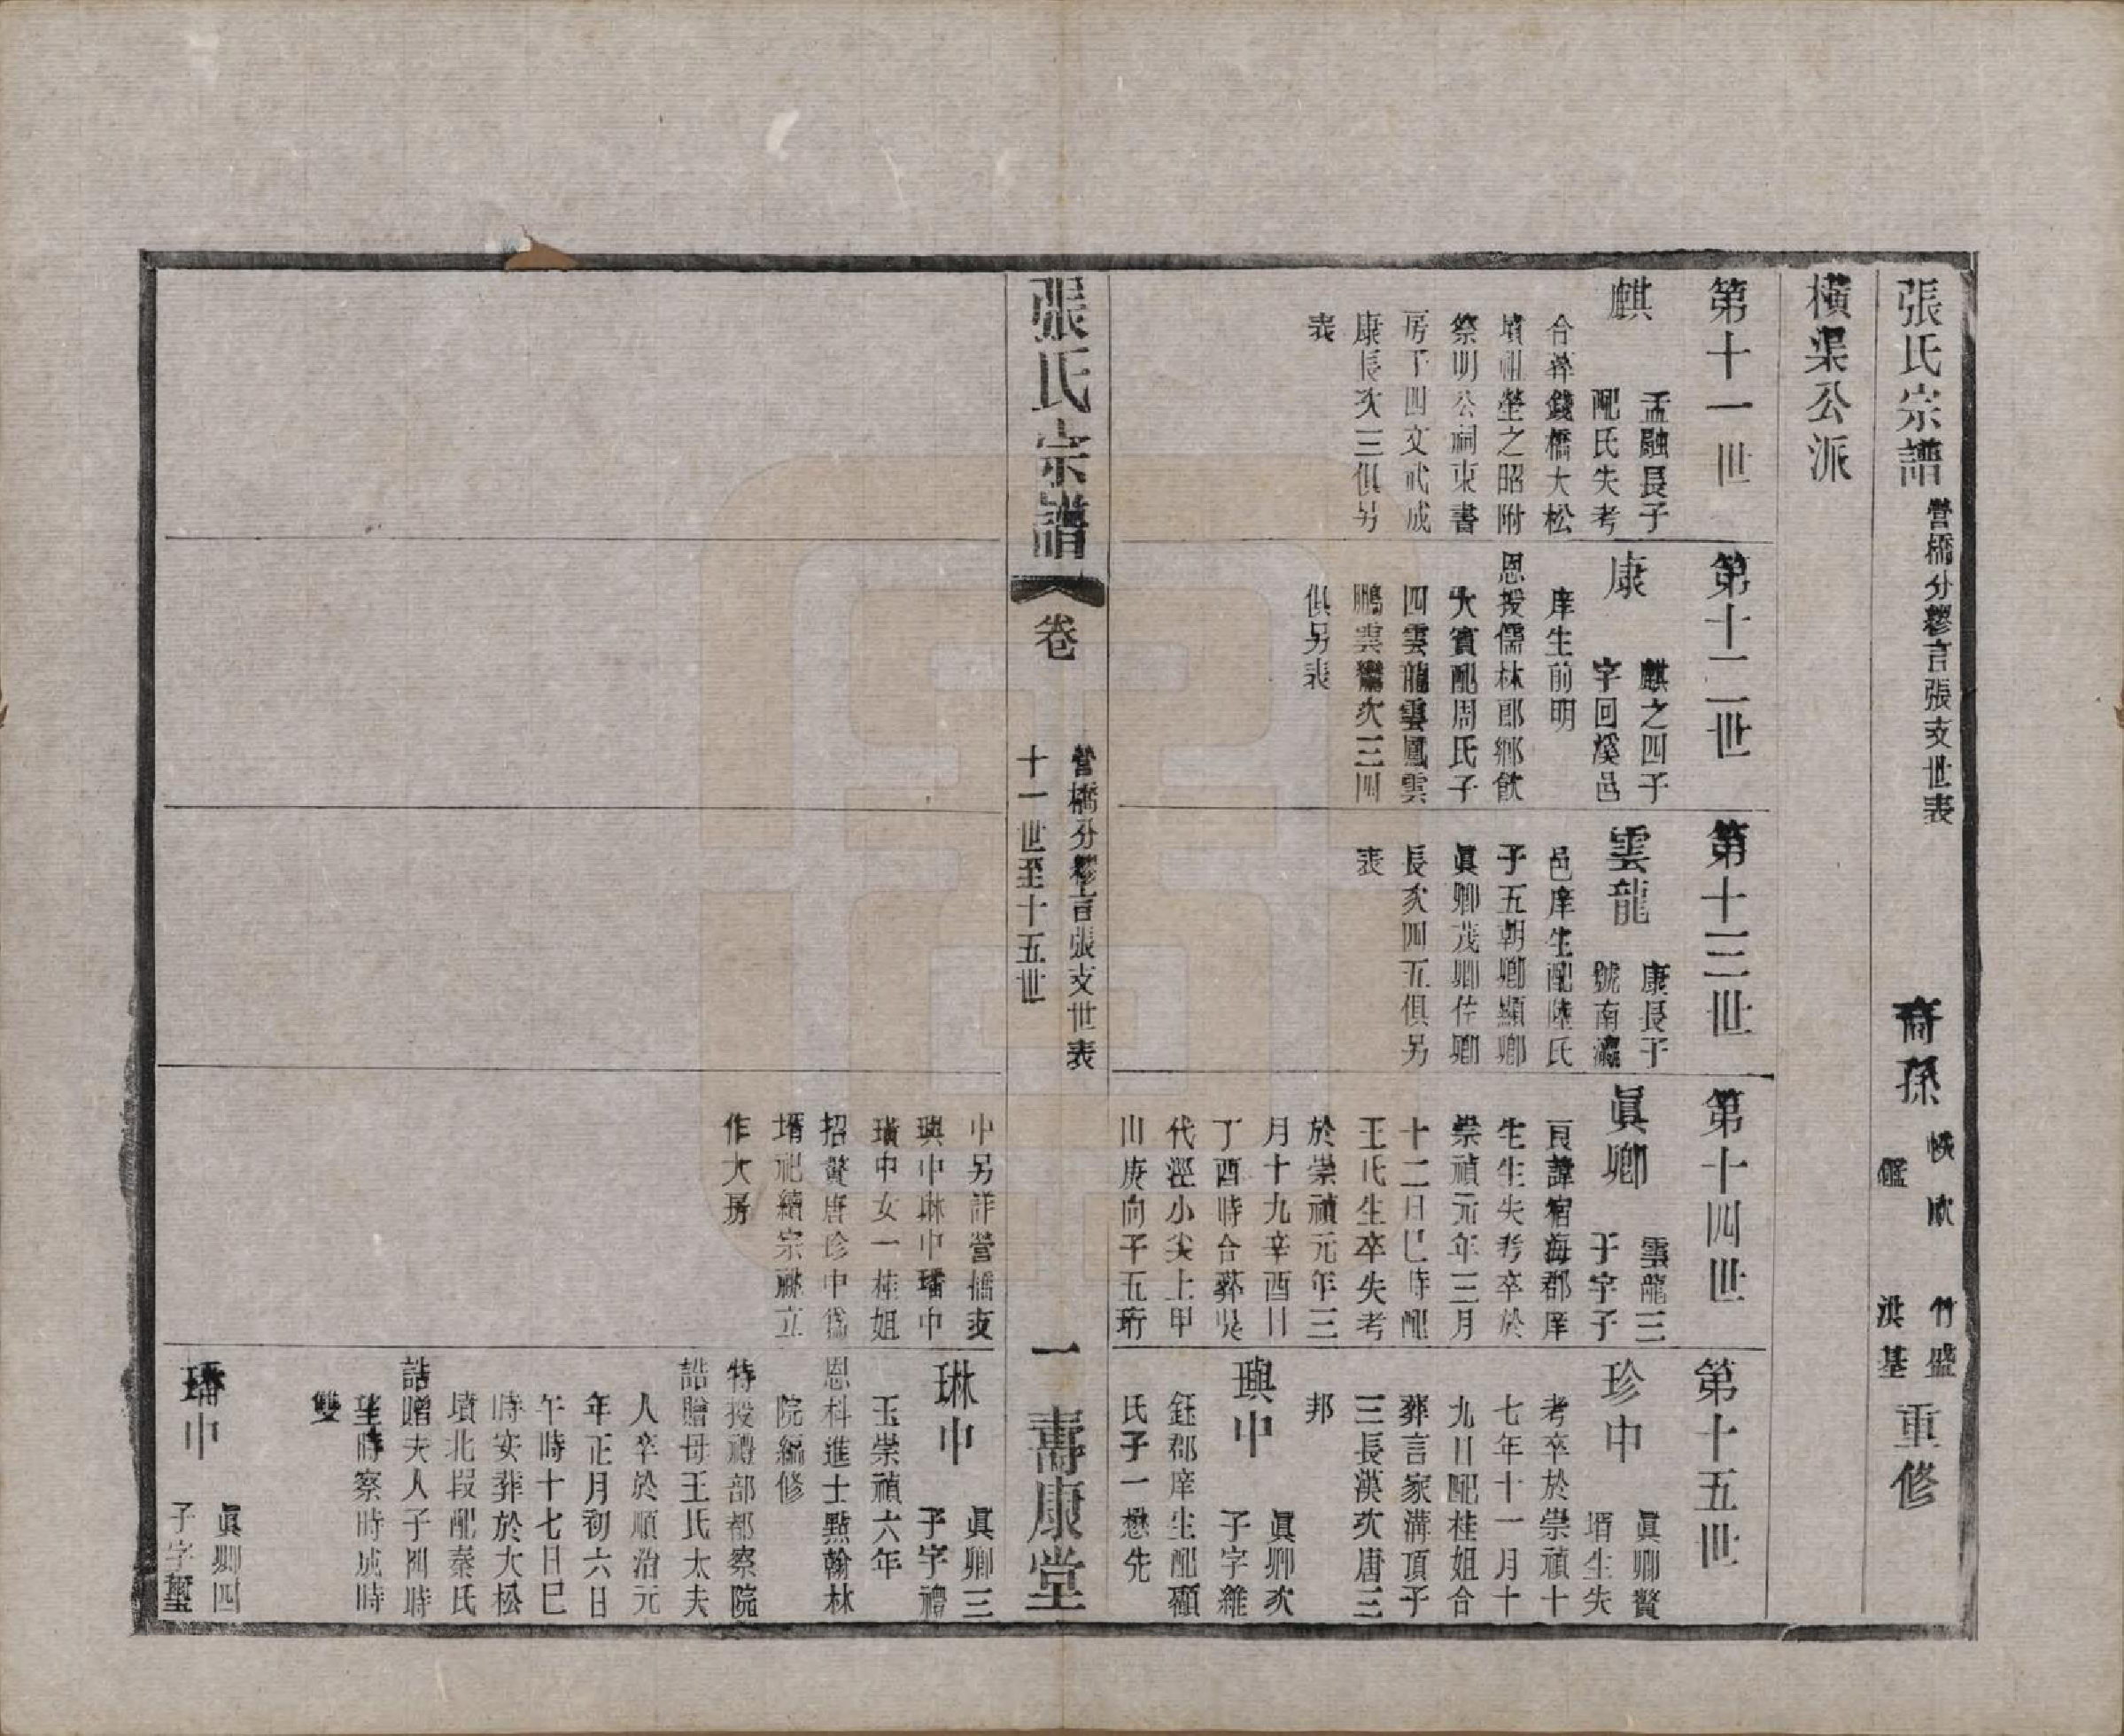 張氏宗譜 營橋分繆言張支世表
裔孫
欣
鑑
竹盛
洪基
重修
橫渠公派
第十一世
麒
孟融長子
配氏失考
合葬錢橋大松
墳祖塋之昭附
祭明公祠東書
房子四文武成
康長次三俱另
表
第十二世
康
麒之四子
字回溪邑
庠生前明
恩授儒林郎鄉飲
大賓配周氏子
四雲龍雲鳳雲
鵬雲鸞次三四
俱另表
第十三世
雲龍
康長子
號南瀛
邑庠生配陸氏
子五朝卿顯卿
眞卿茂卿佐卿
長次四五俱另
表
第十四世
眞卿
雲龍三
子字子
貢諱宿海郡庠
生生失考卒於
崇禎元年三月
十二日巳時配
王氏生卒失考
於崇禎元年三
月十九辛酉日
丁酉時合葬吳
代涇小尖上甲
山庚向子五珩
中另詳營橋支
璵中琳中璠中
璜中女一桂姐
招贅唐珍中爲
壻祀續宗祧立
作大房
第十五世
珍中
眞卿贅
壻生失
考卒於崇禎十
七年十一月十
九日配桂姐合
葬言家溝頂子
三長漢次唐三
邦
璵中
眞卿次
子字維
鈺郡庠生配顧
氏子一懋先
琳中
眞卿三
子字禮
玉崇禎六年
恩科進士點翰林
院編修
特授禮部都察院
誥贈母王氏太夫
人卒於順治元
年正月初六日
午時十七日巳
時安葬於大松
墳北段配秦氏
誥贈夫人子四時
望時察時成時
雙
璠中
眞卿四
子字璽
張氏宗譜
卷
營橋分繆言張支世表
十一世至十五世
一
壽康堂